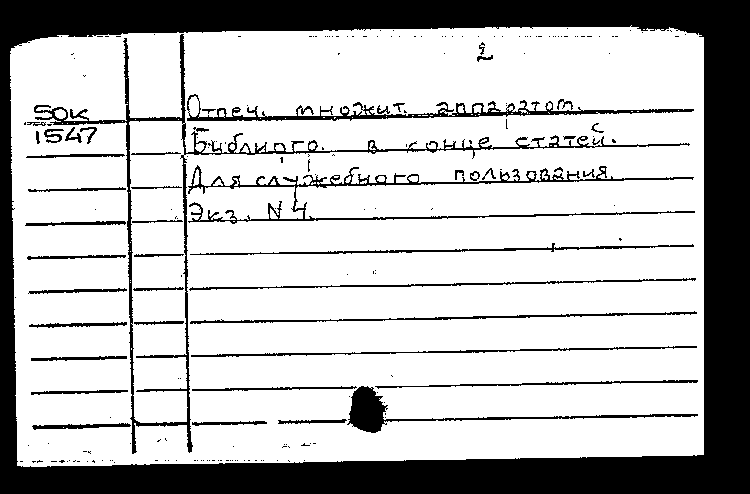 2
50к
1547
Отпеч. множит. аппаратом.
Библиогр. в конце статей.
Для служебного пользования.
Экз. N 4.